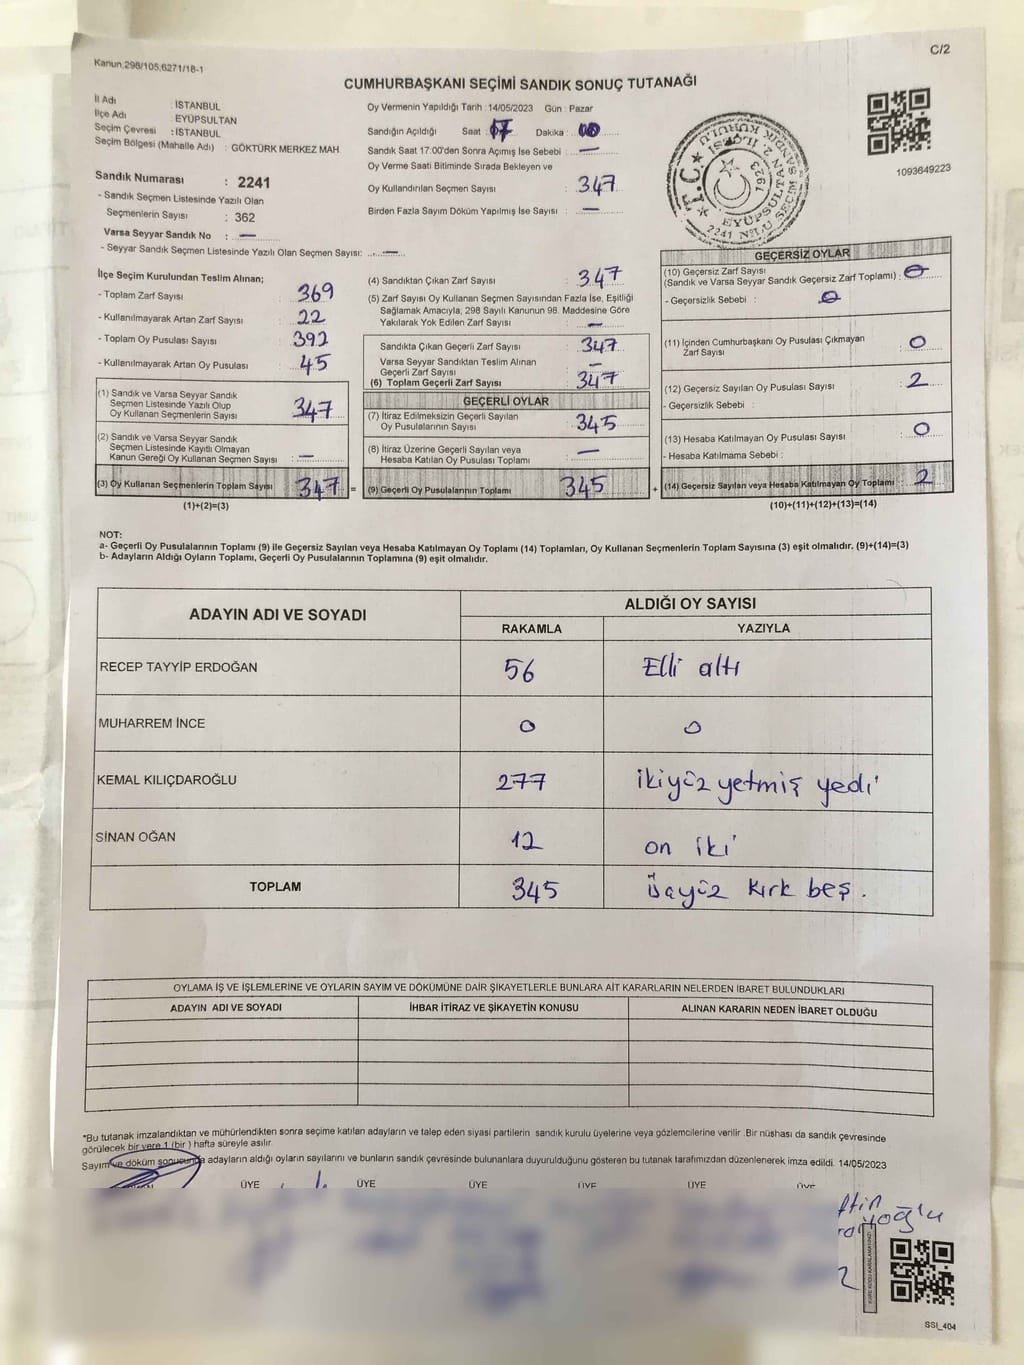 C/2
Kanun.298/105,6271/18-1
CUMHURBAŞKANI SEÇİMİ SANDIK SONUÇ TUTANAĞI
İl Adı : İSTANBUL
İlçe Adı : EYÜPSULTAN
Seçim Çevresi : İSTANBUL
Seçim Bölgesi (Mahalle Adı) : GÖKTÜRK MERKEZ MAH
Sandık Numarası : 2241
- Sandık Seçmen Listesinde Yazılı Olan
Seçmenlerin Sayısı : 362
Varsa Seyyar Sandık No : —
- Seyyar Sandık Seçmen Listesinde Yazılı Olan Seçmen Sayısı: —
Oy Vermenin Yapıldığı Tarih : 14/05/2023 Gün : Pazar
Sandığın Açıldığı Saat : 17 Dakika : 00
Sandık Saat 17:00'den Sonra Açımış İse Sebebi : —
Oy Verme Saati Bitiminde Sırada Bekleyen ve
Oy Kullandırılan Seçmen Sayısı : 347
Birden Fazla Sayım Döküm Yapılmış İse Sayısı : —
T.C.
EYÜPSULTAN 2. İLÇESİ
2241 NOLU SEÇİM SANDIK KURULU
1923
1093649223
İlçe Seçim Kurulundan Teslim Alınan;
- Toplam Zarf Sayısı : 369
- Kullanılmayarak Artan Zarf Sayısı : 22
- Toplam Oy Pusulası Sayısı : 392
- Kullanılmayarak Artan Oy Pusulası : 45
(1) Sandık ve Varsa Seyyar Sandık
Seçmen Listesinde Yazılı Olup
Oy Kullanan Seçmenlerin Sayısı : 347
(2) Sandık ve Varsa Seyyar Sandık
Seçmen Listesinde Kayıtlı Olmayan
Kanun Gereği Oy Kullanan Seçmen Sayısı : —
(3) Oy Kullanan Seçmenlerin Toplam Sayısı : 347 =
(1)+(2)=(3)
(4) Sandıktan Çıkan Zarf Sayısı : 347
(5) Zarf Sayısı Oy Kullanan Seçmen Sayısından Fazla İse, Eşitliği
Sağlamak Amacıyla, 298 Sayılı Kanunun 98. Maddesine Göre
Yakılarak Yok Edilen Zarf Sayısı : —
Sandıkta Çıkan Geçerli Zarf Sayısı : 347
Varsa Seyyar Sandıktan Teslim Alınan
Geçerli Zarf Sayısı : —
(6) Toplam Geçerli Zarf Sayısı : 347
GEÇERLİ OYLAR
(7) İtiraz Edilmeksizin Geçerli Sayılan
Oy Pusulalarının Sayısı : 345
(8) İtiraz Üzerine Geçerli Sayılan veya
Hesaba Katılan Oy Pusulası Toplamı : —
(9) Geçerli Oy Pusulalarının Toplamı 345 +
GEÇERSİZ OYLAR
(10) Geçersiz Zarf Sayısı
(Sandık ve Varsa Seyyar Sandık Geçersiz Zarf Toplamı) : 0
- Geçersizlik Sebebi : 0
(11) İçinden Cumhurbaşkanı Oy Pusulası Çıkmayan
Zarf Sayısı : 0
(12) Geçersiz Sayılan Oy Pusulası Sayısı : 2
- Geçersizlik Sebebi :
(13) Hesaba Katılmayan Oy Pusulası Sayısı : 0
- Hesaba Katılmama Sebebi :
(14) Geçersiz Sayılan veya Hesaba Katılmayan Oy Toplamı : 2
(10)+(11)+(12)+(13)=(14)
NOT:
a- Geçerli Oy Pusulalarının Toplamı (9) ile Geçersiz Sayılan veya Hesaba Katılmayan Oy Toplamı (14) Toplamları, Oy Kullanan Seçmenlerin Toplam Sayısına (3) eşit olmalıdır. (9)+(14)=(3)
b- Adayların Aldığı Oyların Toplamı, Geçerli Oy Pusulalarının Toplamına (9) eşit olmalıdır.
ADAYIN ADI VE SOYADI
ALDIĞI OY SAYISI
RAKAMLA YAZIYLA
RECEP TAYYİP ERDOĞAN 56 Elli altı
MUHARREM İNCE 0 0
KEMAL KILIÇDAROĞLU 277 ikiyüz yetmiş yedi
SİNAN OĞAN 12 on iki
TOPLAM 345 üçyüz kırk beş.
OYLAMA İŞ VE İŞLEMLERİNE VE OYLARIN SAYIM VE DÖKÜMÜNE DAİR ŞİKAYETLERLE BUNLARA AİT KARARLARIN NELERDEN İBARET BULUNDUKLARI
ADAYIN ADI VE SOYADI İHBAR İTİRAZ VE ŞİKAYETİN KONUSU ALINAN KARARIN NEDEN İBARET OLDUĞU
*Bu tutanak imzalandıktan ve mühürlendikten sonra seçime katılan adayların ve talep eden siyasi partilerin sandık kurulu üyelerine veya gözlemcilerine verilir .Bir nüshası da sandık çevresinde
görülecek bir yere 1 (bir ) hafta süreyle asılır.
Sayım ve döküm sonucunda adayların aldığı oyların sayılarını ve bunların sandık çevresinde bulunanlara duyurulduğunu gösteren bu tutanak tarafımızdan düzenlenerek imza edildi. 14/05/2023
ÜYE ÜYE ÜYE ÜYE ÜYE ÜYE
SSI_404